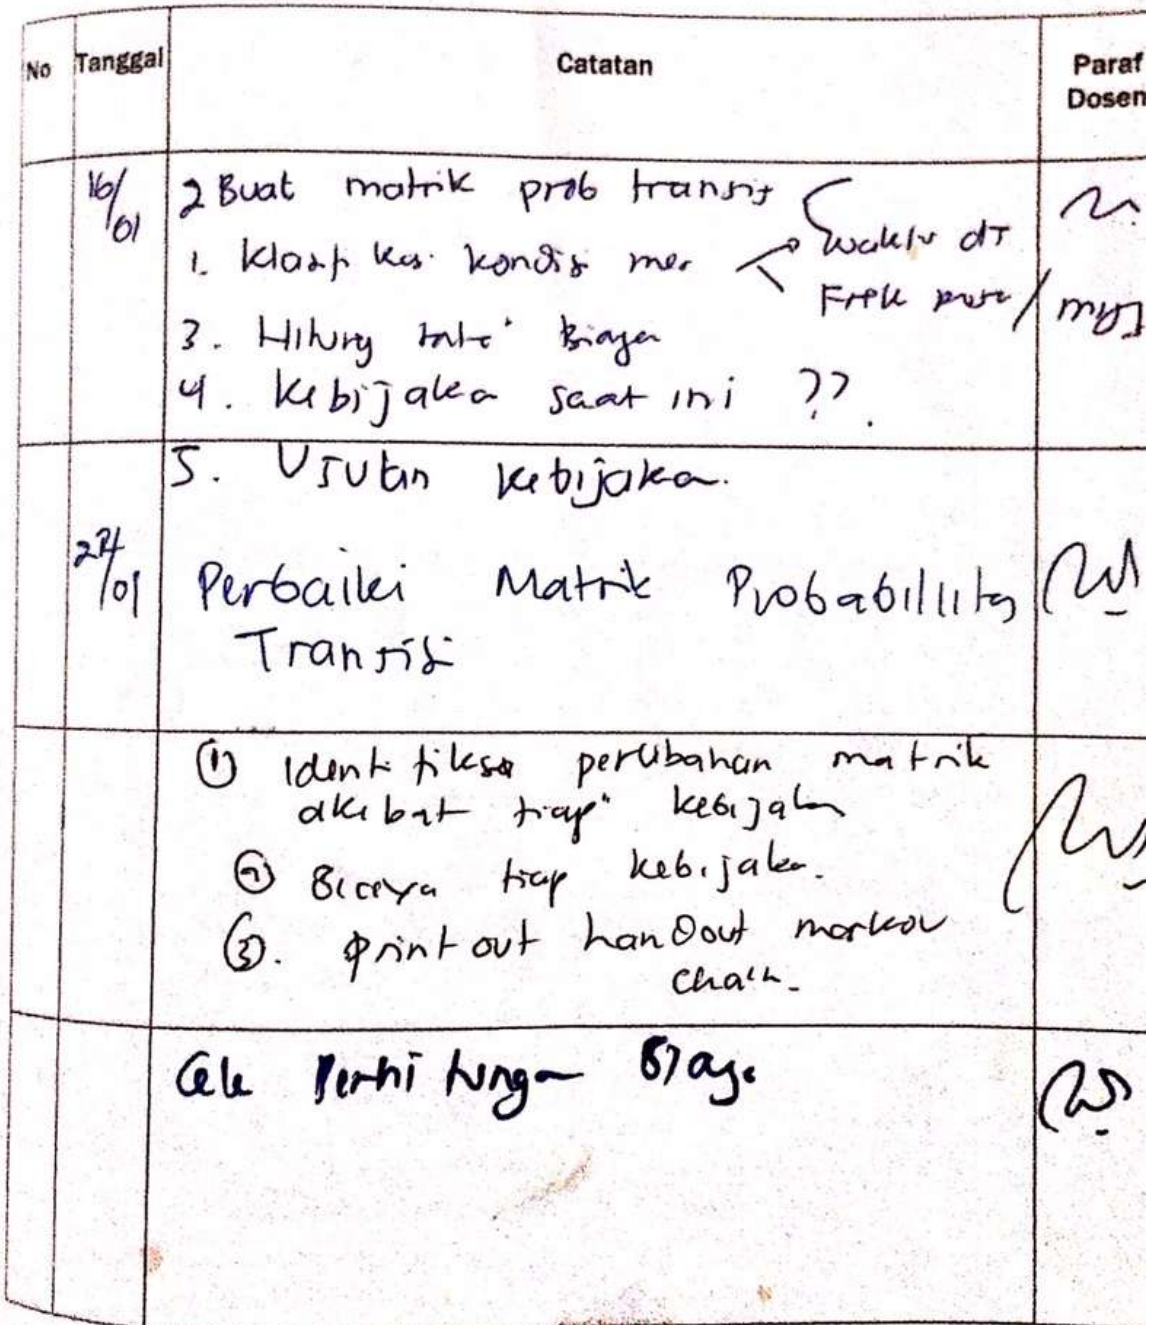 No Tanggal Catatan Paraf Dosen
16/01 2 Buat matrik prob transisi
1. Klasifikasi kondisi mes waktu dt
Frek
3. Hitung Biaya
4. Kebijaka saat ini ??
5. Usulan kebijaka.
24/01 Perbaiki Matrik Probabillity
Transisi
① Identifikasi perubahan matrik
akibat tiap" kebijakan
② Biaya tiap kebijaka.
③. print out handout markov
chain.
Cek Perhitungan Biaya